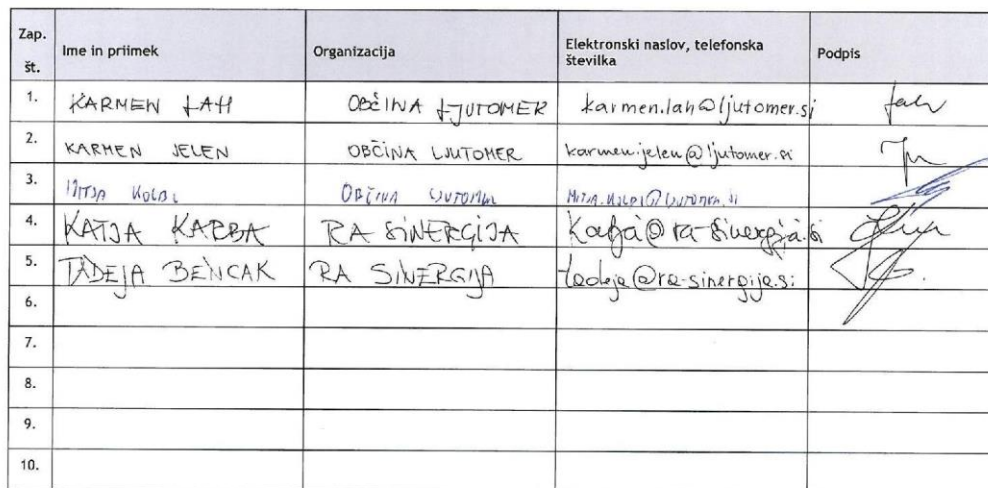 Zap. št. Ime in priimek Organizacija Elektronski naslov, telefonska številka Podpis
1. KARMEN LAH OBČINA LJUTOMER karmen.lah@ljutomer.si
2. KARMEN JELEN OBČINA LJUTOMER karmen.jelen@ljutomer.si
3. MITJA KOLBL OBČINA LJUTOMER
4. KATJA KARBA RA SINERGIJA katja@ra-sinergija.si
5. TADEJA BENCAK RA SINERGIJA tadeja@ra-sinergija.si
6.
7.
8.
9.
10.